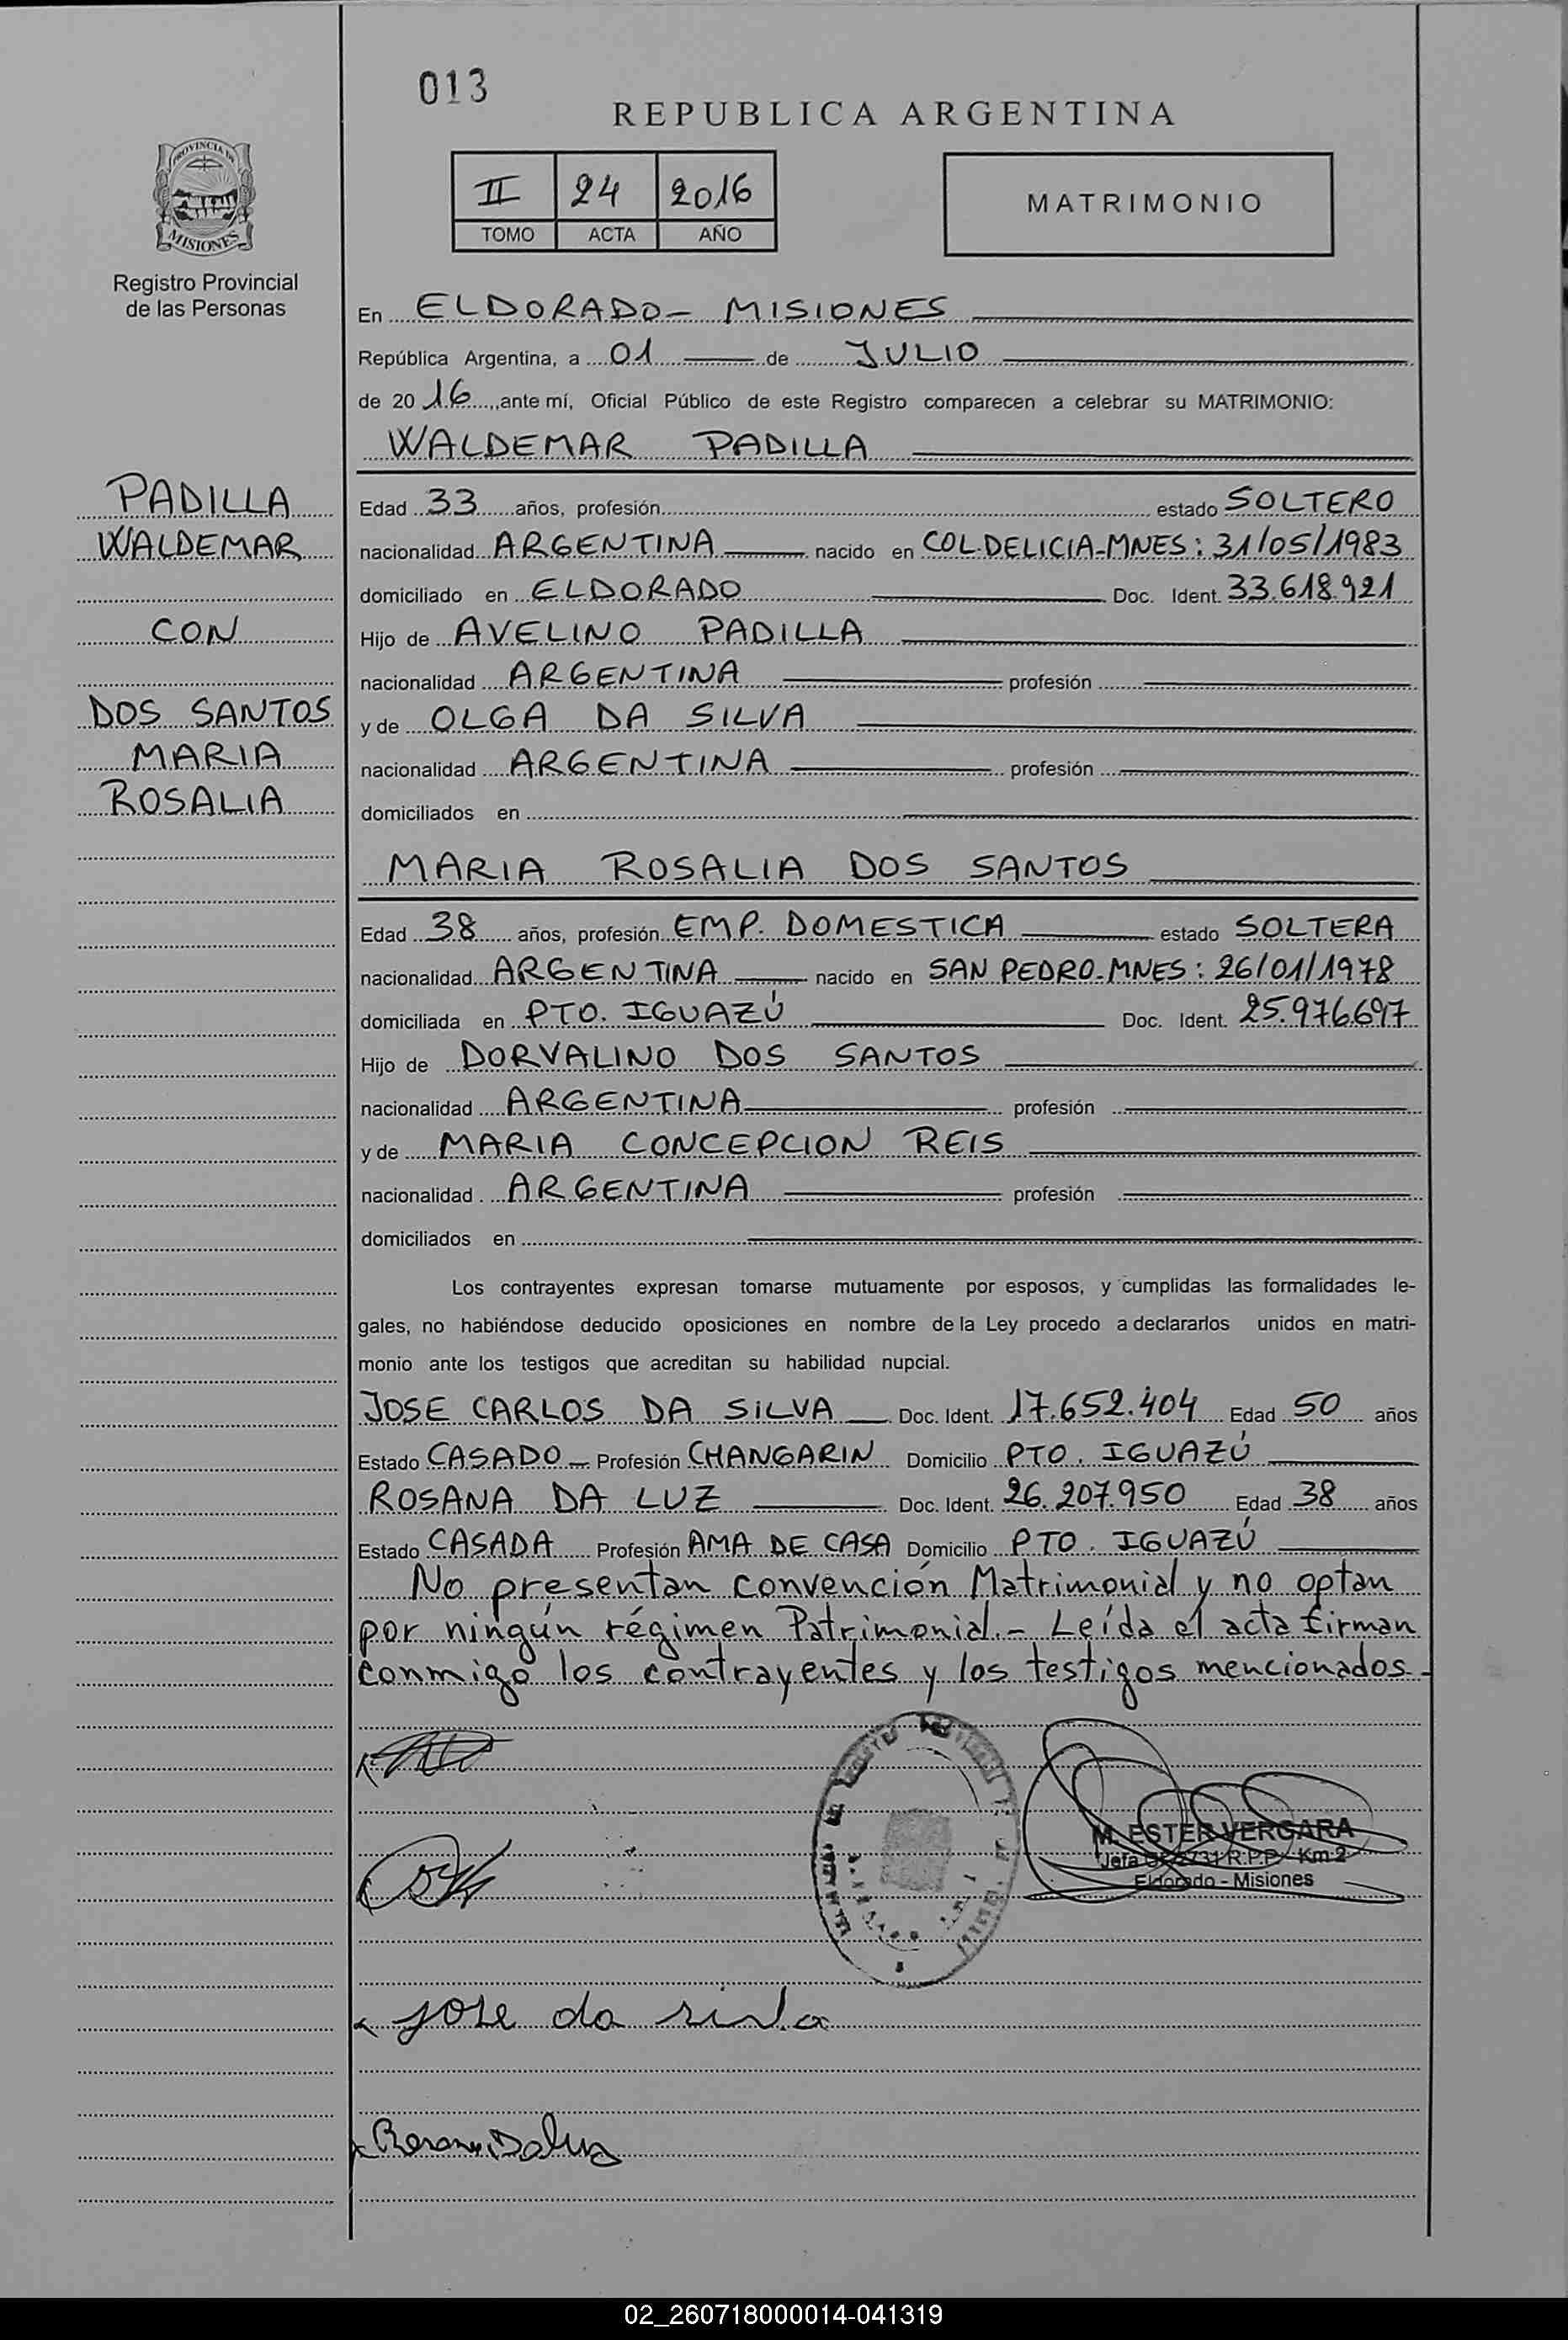 013
REPUBLICA ARGENTINA
PROVINCIA DE
MISIONES
II 24 2016
TOMO ACTA AÑO
MATRIMONIO
Registro Provincial
de las Personas
En ELDORADO - MISIONES
República Argentina, a 01 de JULIO
de 20 16, ante mí, Oficial Público de este Registro comparecen a celebrar su MATRIMONIO:
WALDEMAR PADILLA
PADILLA
WALDEMAR
CON
DOS SANTOS
MARIA
ROSALIA
Edad 33 años, profesión estado SOLTERO
nacionalidad ARGENTINA nacido en COL.DELICIA-MNES: 31/05/1983
domiciliado en ELDORADO Doc. Ident. 33.618.921
Hijo de AVELINO PADILLA
nacionalidad ARGENTINA profesión
y de OLGA DA SILVA
nacionalidad ARGENTINA profesión
domiciliados en
MARIA ROSALIA DOS SANTOS
Edad 38 años, profesión EMP. DOMESTICA estado SOLTERA
nacionalidad ARGENTINA nacido en SAN PEDRO-MNES: 26/01/1978
domiciliada en PTO. IGUAZÚ Doc. Ident. 25.976.697
Hijo de DORVALINO DOS SANTOS
nacionalidad ARGENTINA profesión
y de MARIA CONCEPCION REIS
nacionalidad ARGENTINA profesión
domiciliados en
Los contrayentes expresan tomarse mutuamente por esposos, y cumplidas las formalidades le-
gales, no habiéndose deducido oposiciones en nombre de la Ley procedo a declararlos unidos en matri-
monio ante los testigos que acreditan su habilidad nupcial.
JOSE CARLOS DA SILVA Doc. Ident. 17.652.404 Edad 50 años
Estado CASADO Profesión CHANGARIN Domicilio PTO. IGUAZÚ
ROSANA DA LUZ Doc. Ident. 26.207.950 Edad 38 años
Estado CASADA Profesión AMA DE CASA Domicilio PTO. IGUAZÚ
No presentan convención Matrimonial y no optan
por ningún régimen Patrimonial.- Leída el acta firman
conmigo los contrayentes y los testigos mencionados.-
M. ESTER VERGARA
Jefa R.P.P. Km 2
Eldorado - Misiones
jose da silva
02_260718000014-041319